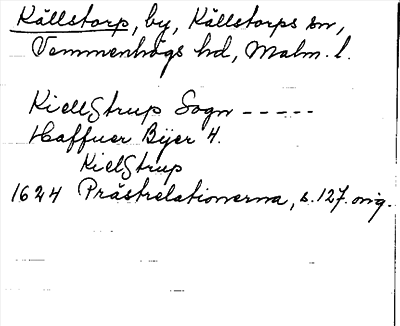 Källstorp, by, Källstorps sn,
Vemmenhögs hd, Malm. l.
Kiellstrup Sogn -----
Haffuer Bÿer 4.
Kielstrup
1624 Prästrelationerna, s. 127. orig.